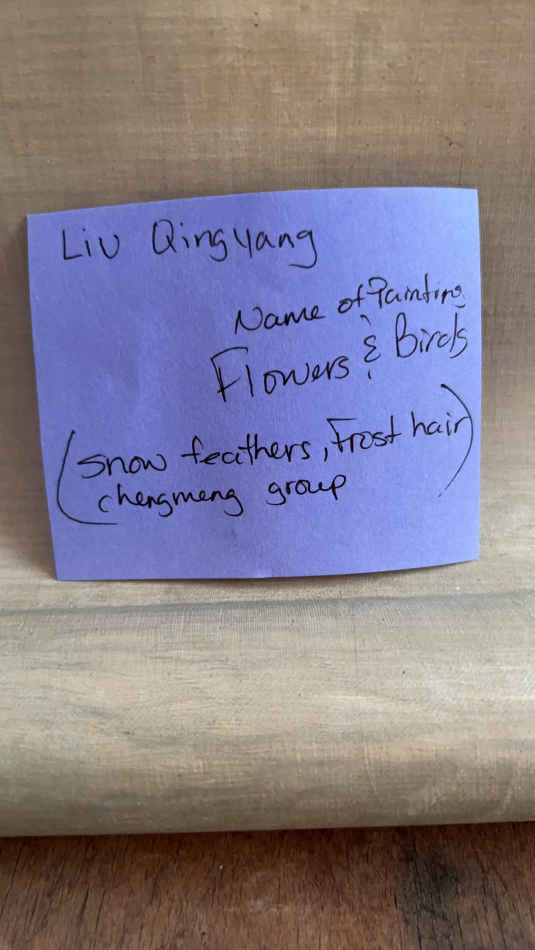 Liu Qingyang
Name of Painting
Flowers & Birds
(snow feathers, Frost hair)
chengmeng group